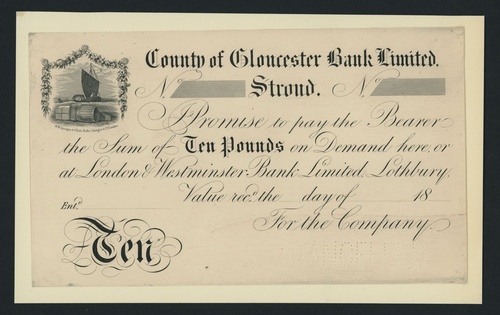 County of Gloucester Bank Limited.
No Stroud. No
I Promise to pay the Bearer
the Sum of Ten Pounds on Demand here, or
at London & Westminster Bank, Limited, Lothbury.
Value recd. the day of 18
Entd.
For the Company,
Ten